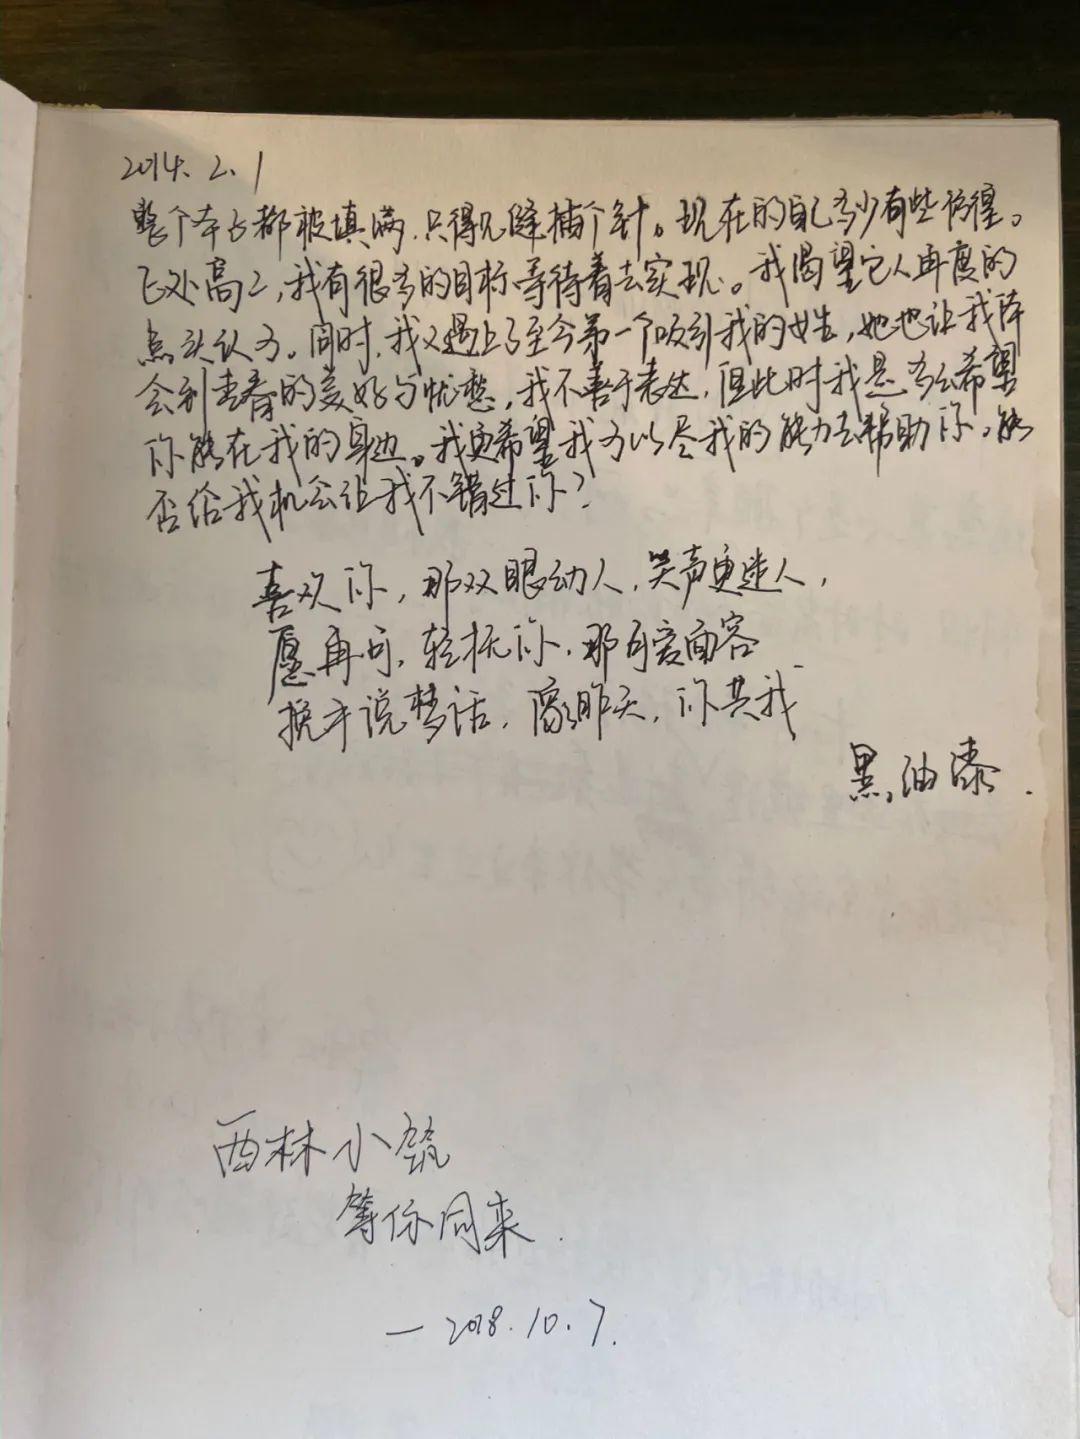 2014.2.1
整个本子都被填满,只得见缝插个针。现在的自己多少有些彷徨。
已处高二,我有很多的目标等待着去实现。我渴望它人再度的
点头认可。同时,我又遇上了至今第一个吸引我的女生,她也让我体
会到青春的美好与忧愁,我不善于表达,但此时我是多么希望
你能在我的身边。我更希望我可以尽我的能力去帮助你。能
否给我机会让我不错过你?
喜欢你,那双眼动人,笑声更迷人,
愿再可,轻抚你,那可爱面容
挽手说梦话,像昨天,你共我
黑油漆.
西林小筑
等你回来.
—2018.10.7.